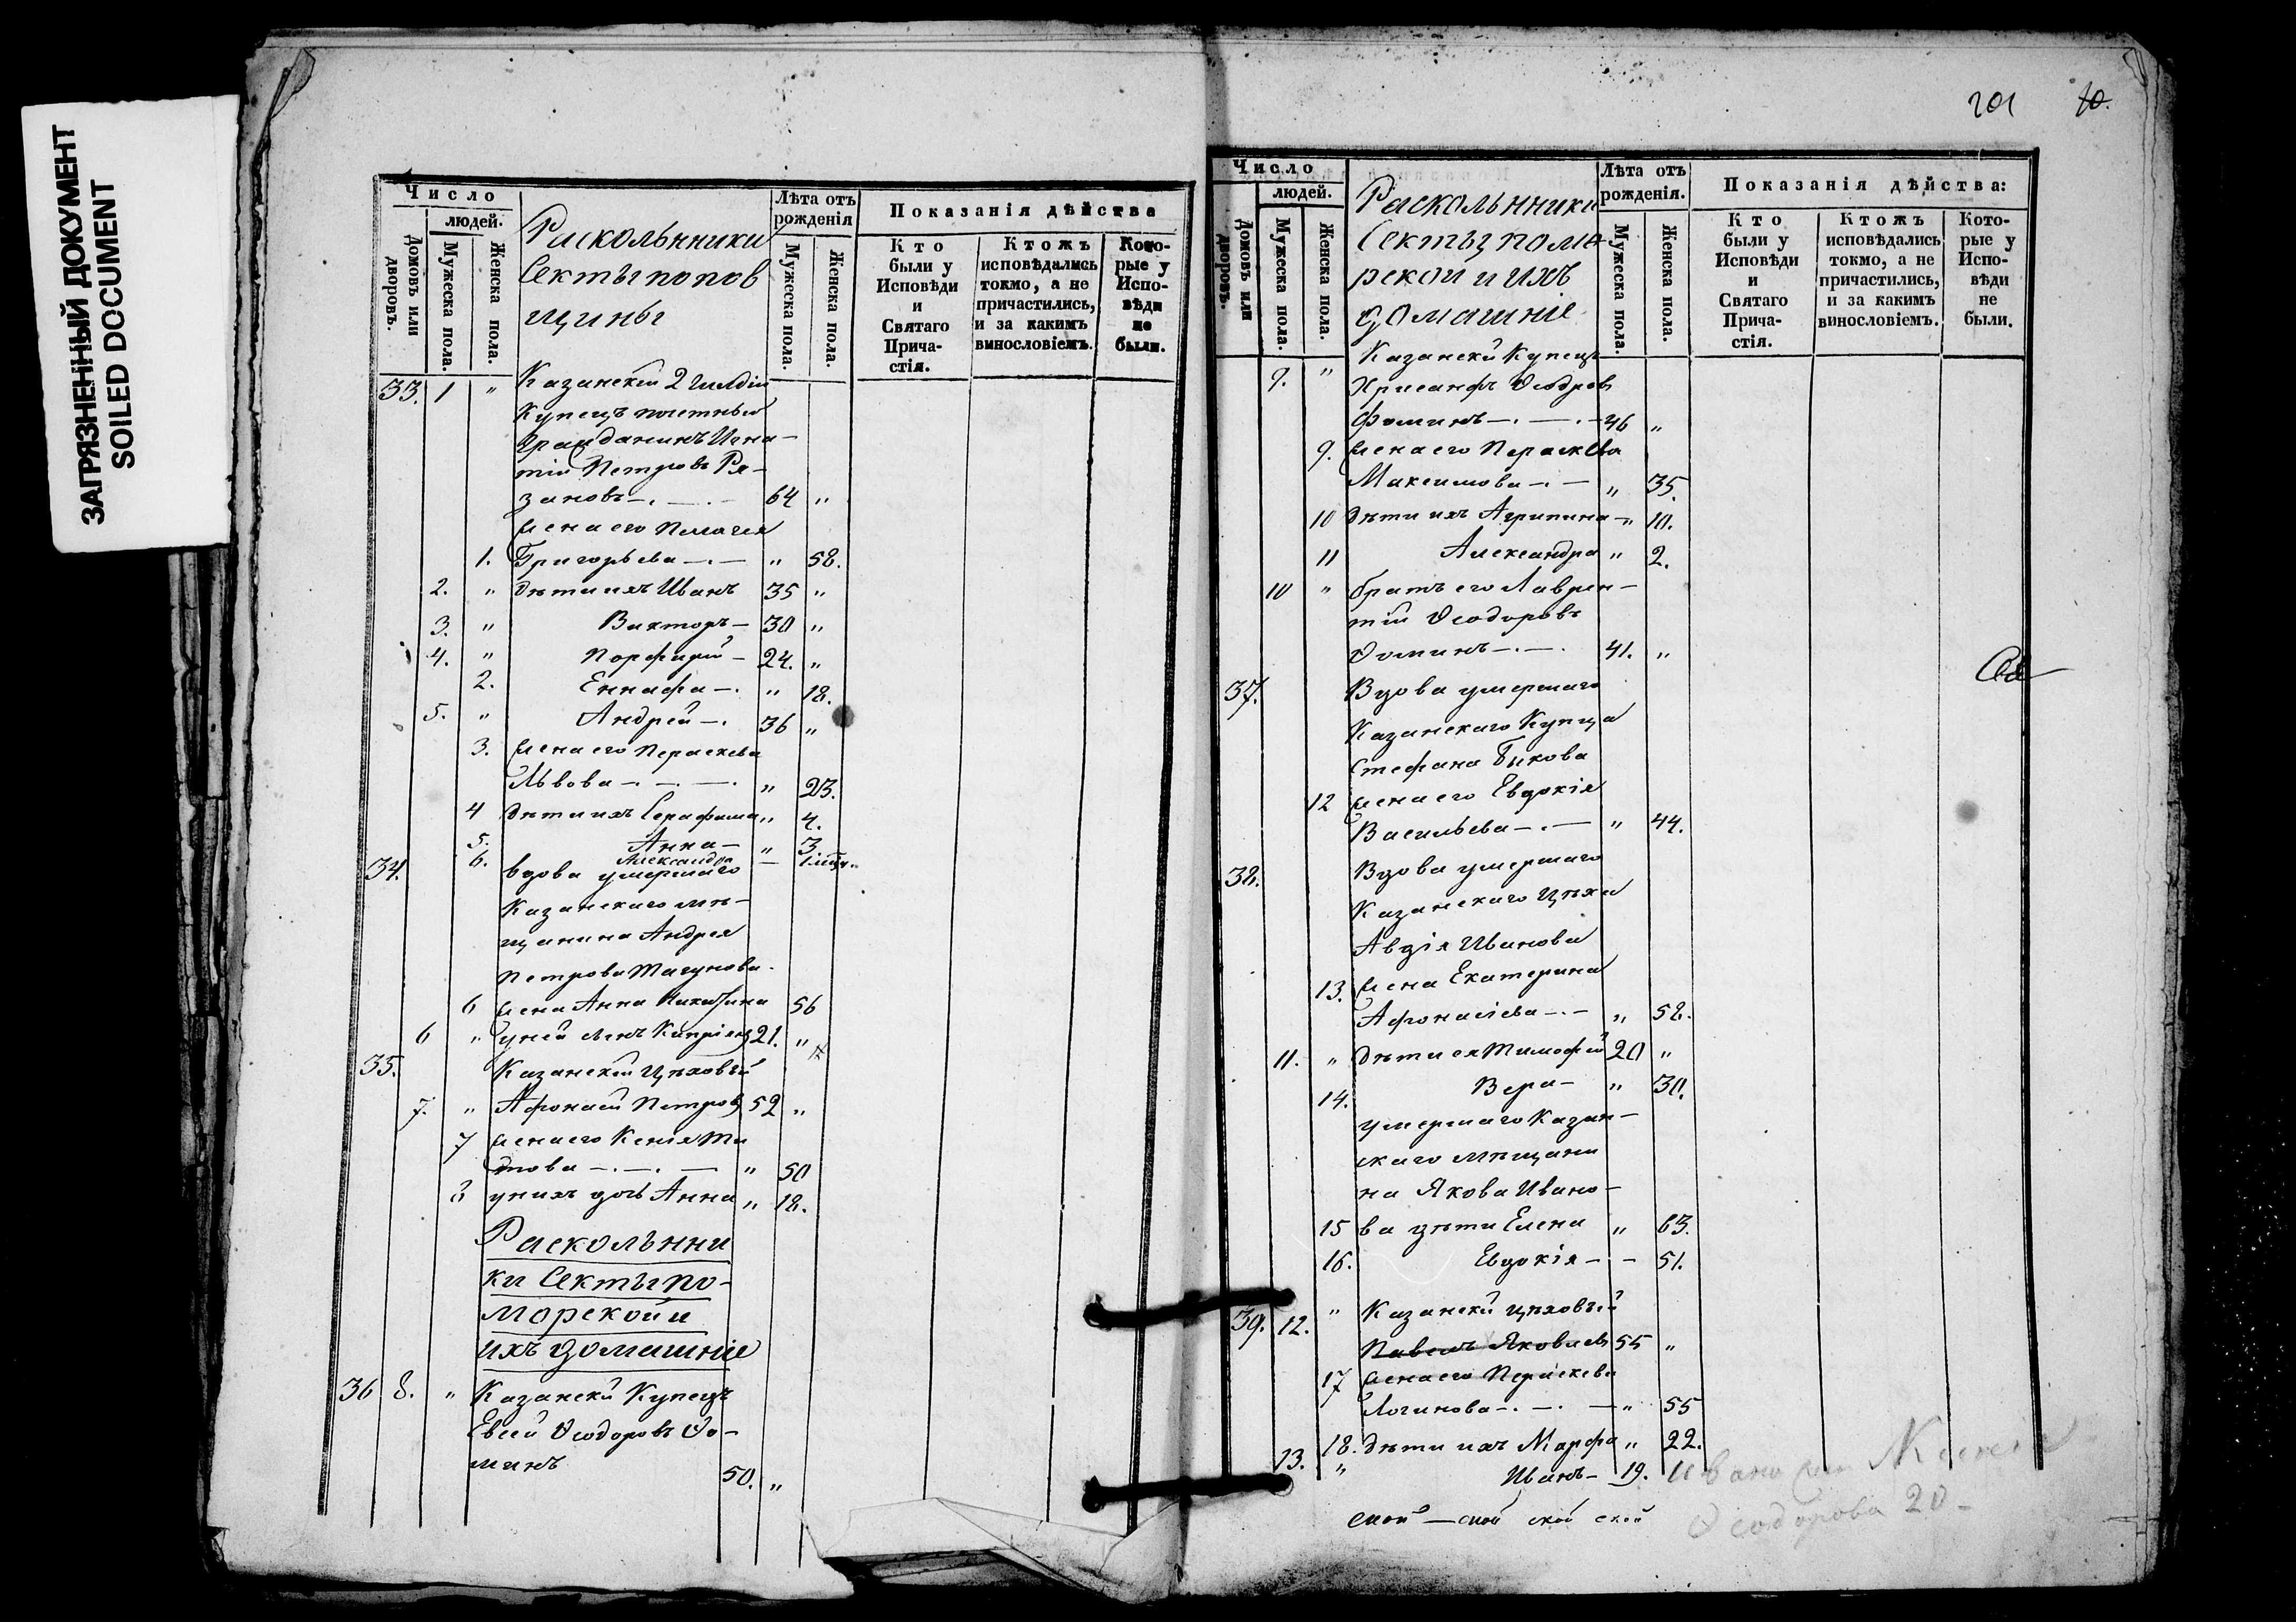 ЗАГРЯЗНЕННЫЙ ДОКУМЕНТ
SOILED DOCUMENT
Число
людей.
Домовъ или дворовъ.
Мужеска пола.
Женска пола.
Раскольники
Секты попов
щины
Лѣта отъ рожденія
Мужеска пола.
Женска пола.
Показанія дѣйства
Кто были у Исповѣди и Святаго Прича-стія.
Ктожъ исповѣдались токмо, а не причастились, и за какимъ винословіемъ.
Кото-рые у Испо-вѣди не были.
33. 1 " Казанскій 2 гилдіи
Купецъ почетный
Гражданинъ Игна-
тій Петровъ Ря-
зановъ 64 "
Жена его Пелагея
1. Григорьева " 58.
2. " дѣти ихъ Иванъ 35 "
3. " Викторъ 30 "
4. " Порфирій 24. "
2. " 18.
5. " Андрей 36 "
3. Жена его Параскева
Львова " 23.
4 дѣти ихъ Серафима " 4.
5. Анна " 3
6. Александра
34. вдова умершаго
Казанскаго мѣ-
щанина Андрея
Петрова
6 жена Анна Никитина 56
6 " у ней 21. "
35. Казанскій Цѣховый
7. " Афонасій Петровъ 52 "
7 жена его Ксенія Ти
това " 50
8 у нихъ дочь Анна " 18.
Раскольни
ки Секты по-
морской и
ихъ домашніе
36 8. " Казанскій Купецъ
Евсей Ѳеодоровъ Ѳо-
минъ 50. "
201 10.
Число
людей.
Домовъ или дворовъ.
Мужеска пола.
Женска пола.
Раскольнники
Секты помо
рской и ихъ
домашніе
Лѣта отъ рожденія.
Мужеска пола.
Женска пола.
Показанія дѣйства:
Кто были у Исповѣди и Святаго Прича-стія.
Ктожъ исповѣдались токмо, а не причастились, и за какимъ винословіемъ.
Кото-рые у Испо-вѣди не были.
Казанскй Купецъ
9. " Хрисанфъ Ѳеодоров
Фоминъ 46 "
9. Жена его Параскева
Максимова " 35.
10 дѣти ихъ Агрипина " 10.
11 Александра " 2.
10 " братъ его Лаврен-
тій Ѳеодоровъ
Ѳоминъ 41. "
37. Вдова умершаго
Казанскаго Купца
Стефана Быкова
12 жена его Евдокія
Васильева " 44.
38. Вдова умершаго
Казанскаго Цѣхи
Авдія Иванова
13. Жена Екатерина
Афонасіева " 58.
11. " дѣти ея Тимофей 20 "
14. Вера " 30.
умершаго Казан-
скаго мѣщани
на Якова Ивано-
15 ва дѣти Елена " 63.
16. Евдокія 51.
39. 12. " Казанскй цѣховый
Павелъ Яковлев 55 "
17 жена его Параскева
Логинова " 55
18. дѣти ихъ Марфа " 22.
13. " Иванъ 19.
Ѳеодорова 20